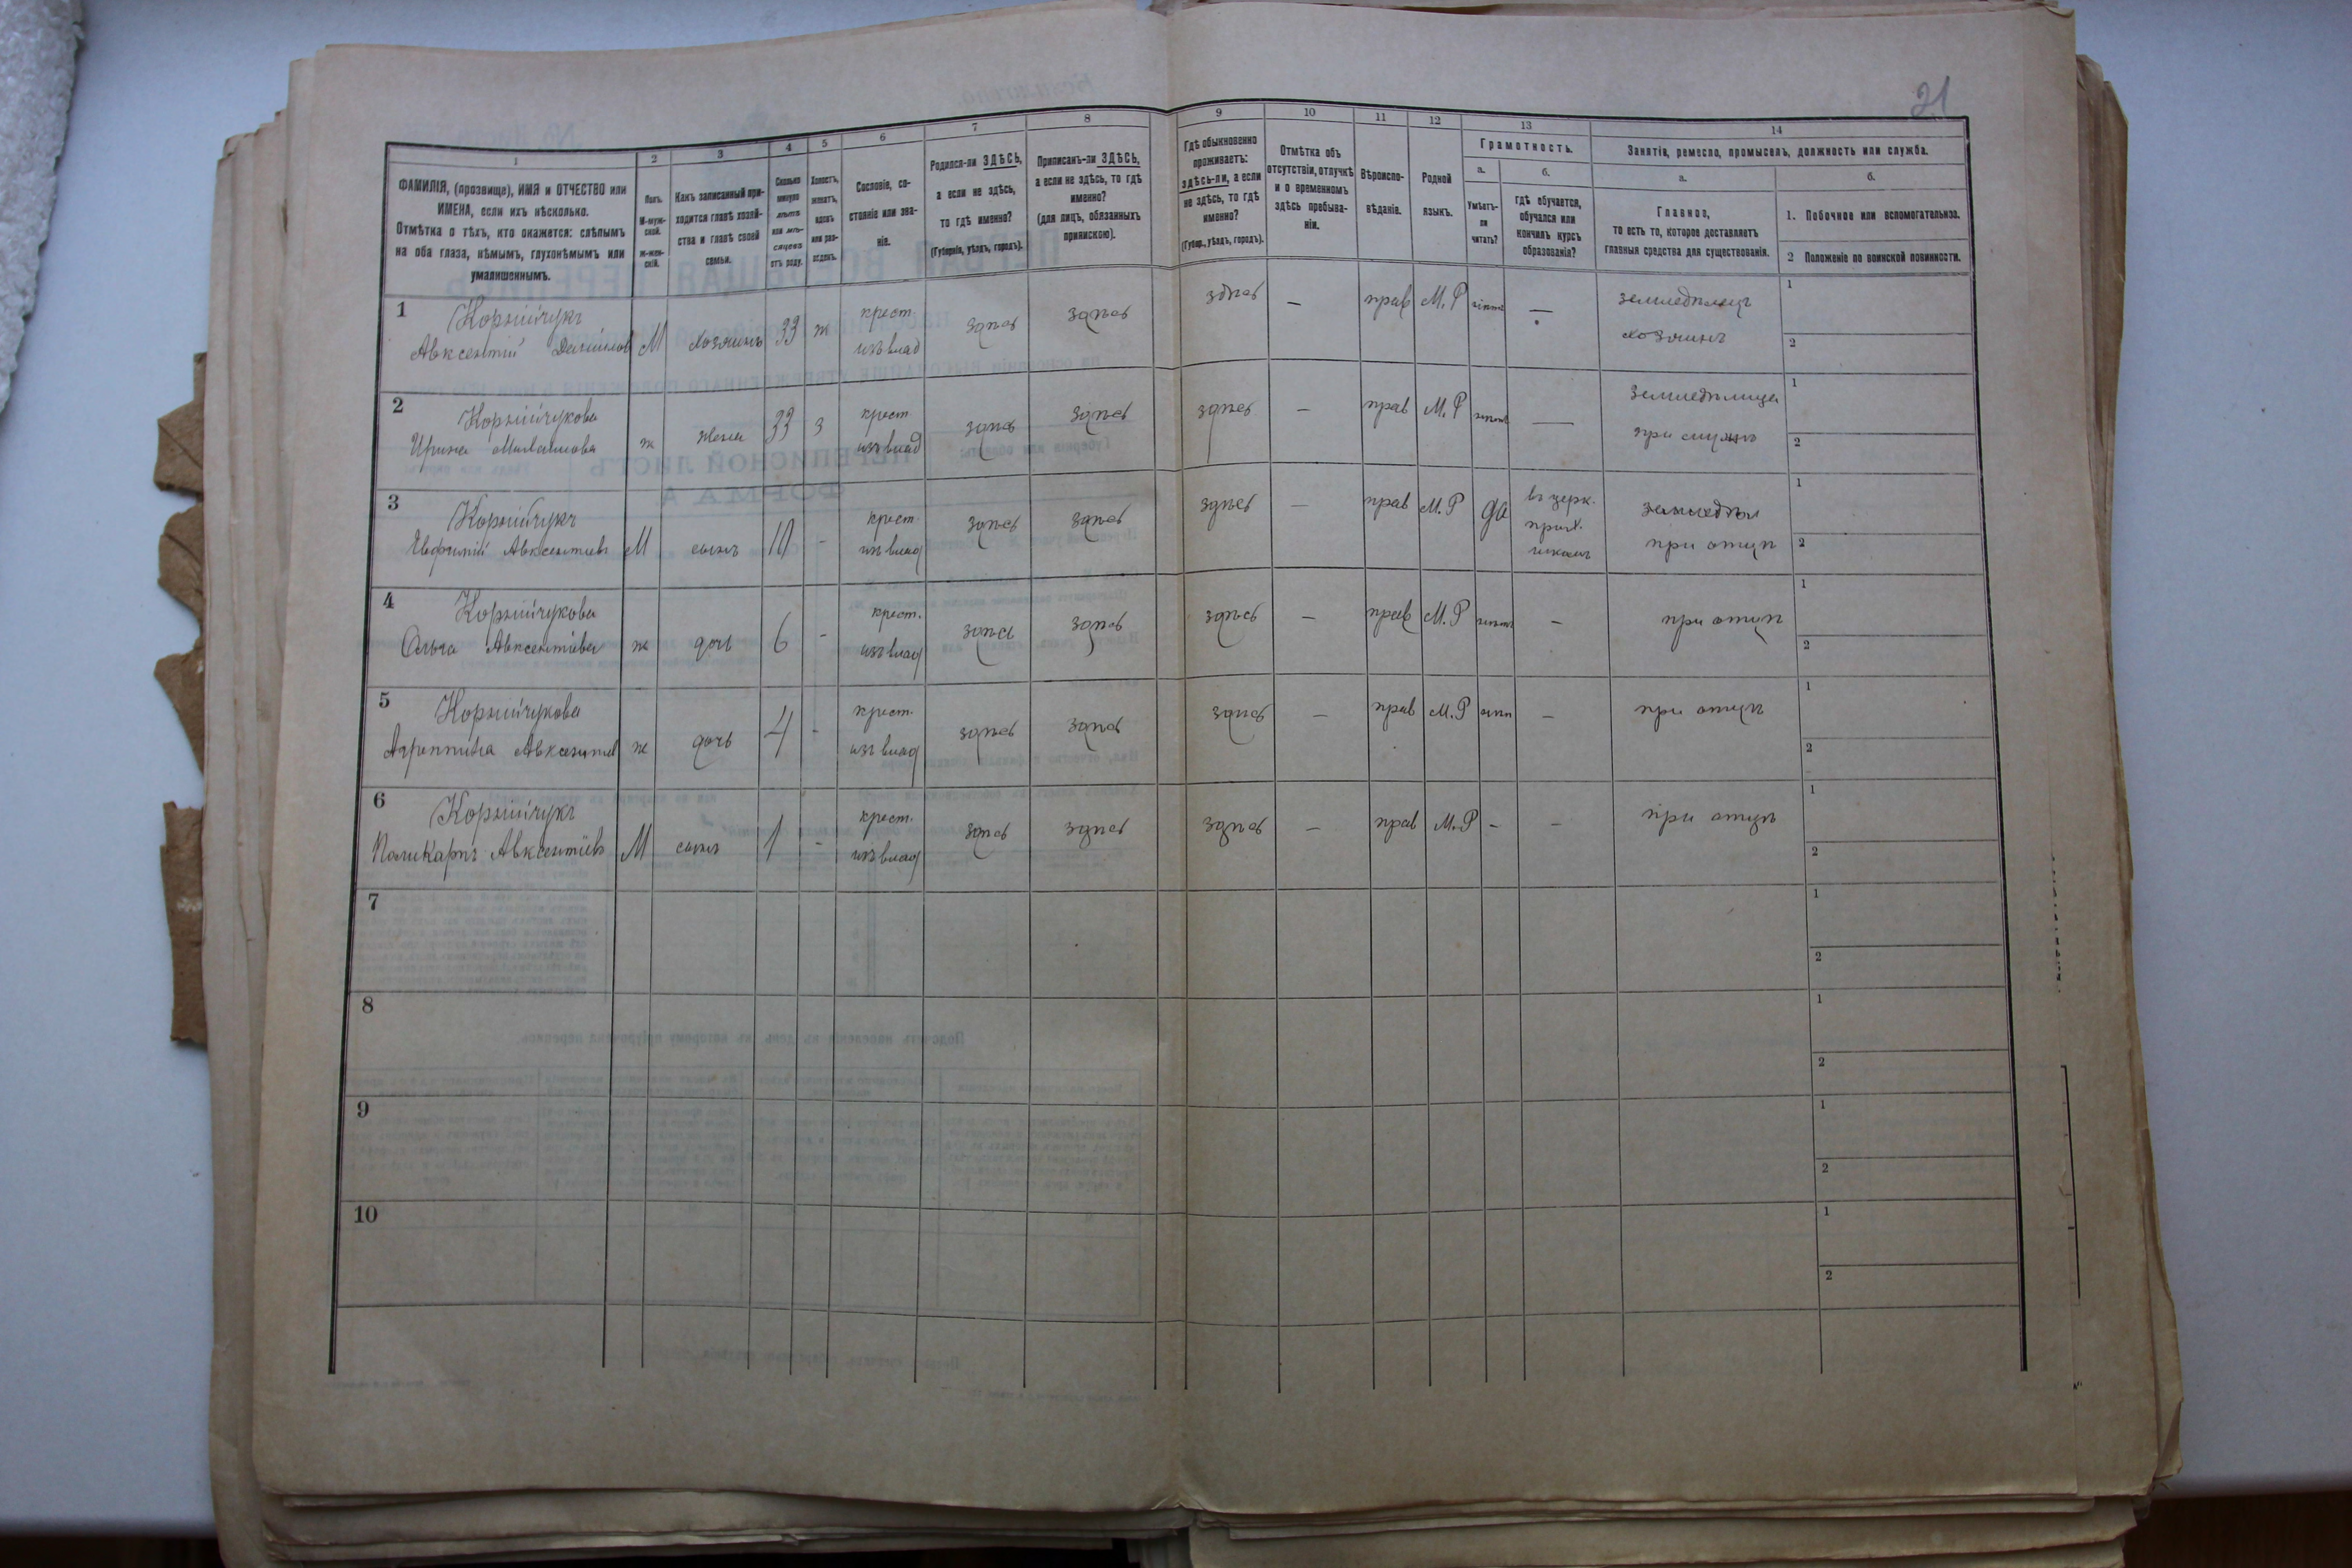 21
1
2
3
4
5
6
7
8
9
10
11
12
13
14
ФАМИЛІЯ, (прозвище), ИМЯ и ОТЧЕСТВО или
ИМЕНА, если ихъ нѣсколько.
Отмѣтка о тѣхъ, кто окажется: слѣпымъ
на оба глаза, нѣмымъ, глухонѣмымъ или
умалишеннымъ.
Полъ.
М-муж-
ской.
Ж-жен-
скій.
Какъ записанный при-
ходится главѣ хозяй-
ства и главѣ своей
семьи.
Сколько
минуло
лѣтъ
или мѣ-
сяцевъ
отъ роду.
Холостъ,
женатъ,
вдовъ
или раз-
веденъ.
Сословіе, со-
стояніе или зва-
ніе.
Родился-ли ЗДѢСЬ,
а если не здѣсь,
то гдѣ именно?
(Губернія, уѣздъ, городъ).
Приписанъ-ли ЗДѢСЬ,
а если не здѣсь, то гдѣ
именно?
(для лицъ, обязанныхъ
припискою).
Гдѣ обыкновенно
проживаетъ:
здѣсь-ли, а если
не здѣсь, то гдѣ
именно?
(Губер., уѣздъ, городъ).
Отмѣтка объ
отсутствіи, отлучкѣ
и о временномъ
здѣсь пребыва-
ніи.
Вѣроиспо-
вѣданіе.
Родной
языкъ.
Грамотность.
а.
Умѣетъ-
ли
читать?
б.
гдѣ обучается,
обучался или
кончилъ курсъ
образованія?
Занятіе, ремесло, промыселъ, должность или служба.
а.
Главное,
то есть то, которое доставляетъ
главныя средства для существованія.
б.
1. Побочное или вспомогательное.
2 Положеніе по воинской повинности.
1 Корнійчукъ
Авксентій Даниілов М хозяинъ 33 ж крест. изъ влад здѣсь здѣсь здѣсь — прав М. Р — земледѣлецъ хозяинъ 1 2
2 Корнійчукова
Ирина ж жена 33 з крест изъ влад здѣсь здѣсь здѣсь — прав М. Р — земледѣлица при мужѣ 1 2
3 Корнійчукъ
Евфимій Авксентіев М сынъ крест. изъ влад здѣсь здѣсь здѣсь — прав М. Р да въ церк. прих. школѣ земледѣл при отцѣ 1 2
4 Корнійчукова
Ольга Авксентіева ж дочь 6 - крест. изъ влад здѣсь здѣсь здѣсь — прав М. Р — при отцѣ 1 2
5 Корнійчукова
Агриппина Авксентіев ж дочь 4 - крест. изъ влад здѣсь здѣсь здѣсь — прав М. Р — при отцѣ 1 2
6 Корнійчукъ
Поликарпъ Авксентіев М сынъ 1 - крест. изъ влад здѣсь здѣсь здѣсь — прав М. Р - - при отцѣ 1 2
7 1 2
8 1 2
9 1 2
10 1 2